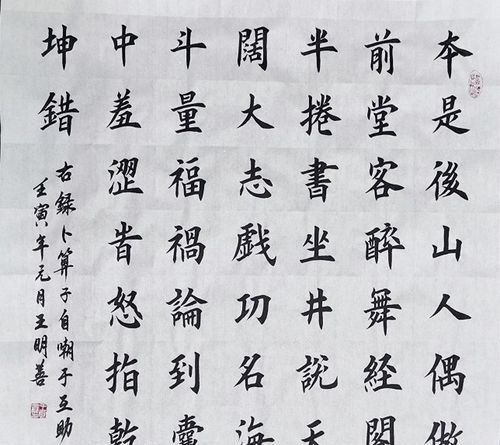 本是後山人偶做
前堂客醉舞經閣
半捲書坐井説天
闊大志戯功名海
斗量福禍論到囊
中羞澀旹怒指乾
坤錯
右録卜算子自嘲于互助
壬寅年元月王明善